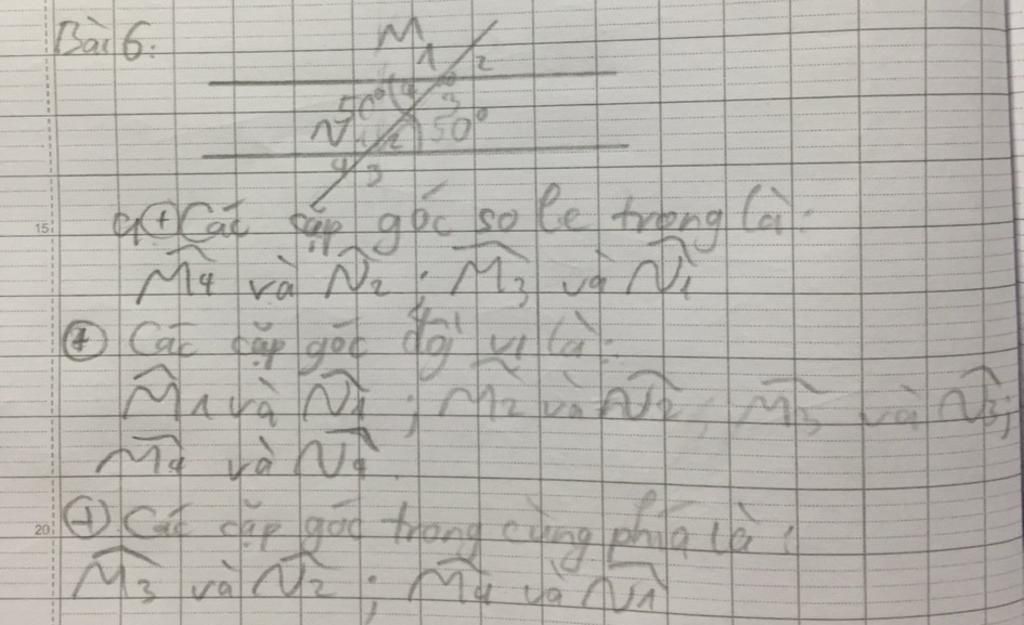 Bài 6.
M
1 2
50° 4 3
N 1 2 50°
4 3
a, + Các cặp góc so le trong là:
M̂4 và N̂2 ; M̂3 và N̂1
+ Các cặp góc đồng vị là:
M̂1 và N̂1 ; M̂2 và N̂2 ; M̂3 và N̂3;
M̂4 và N̂4.
+ Các cặp góc trong cùng phía là:
M̂3 và N̂2 ; M̂4 và N̂1
15
20